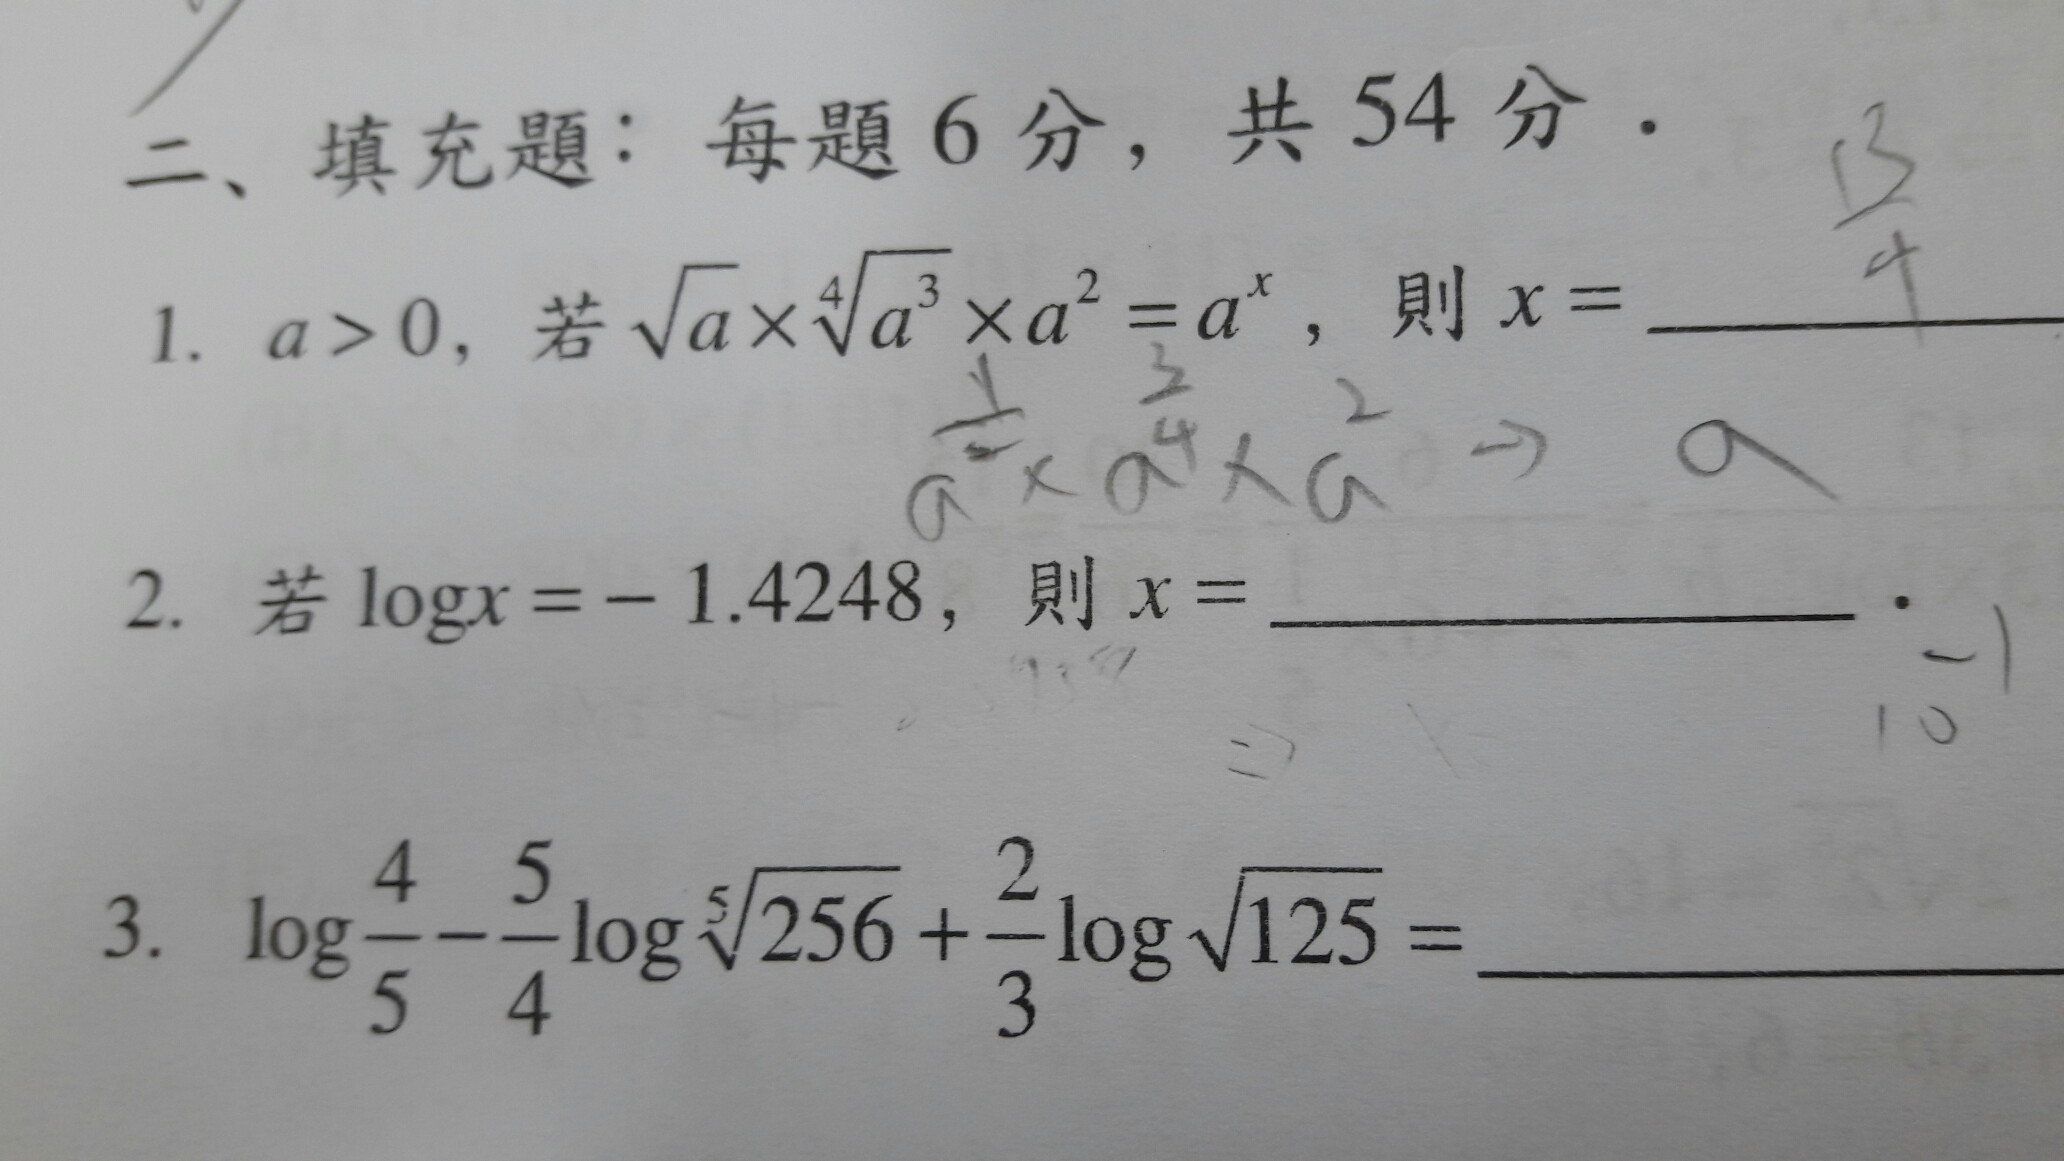 二、填充題：每題 6 分，共 54 分．
13/4
1. a > 0，若 √a × ⁴√a³ × a² = aˣ，則 x = ________
a^(1/2) × a^(3/4) × a² → a
2. 若 logx = − 1.4248，則 x = ________．
10^(-1)
⇒
3. log 4/5 − 5/4 log ⁵√256 + 2/3 log √125 = ________